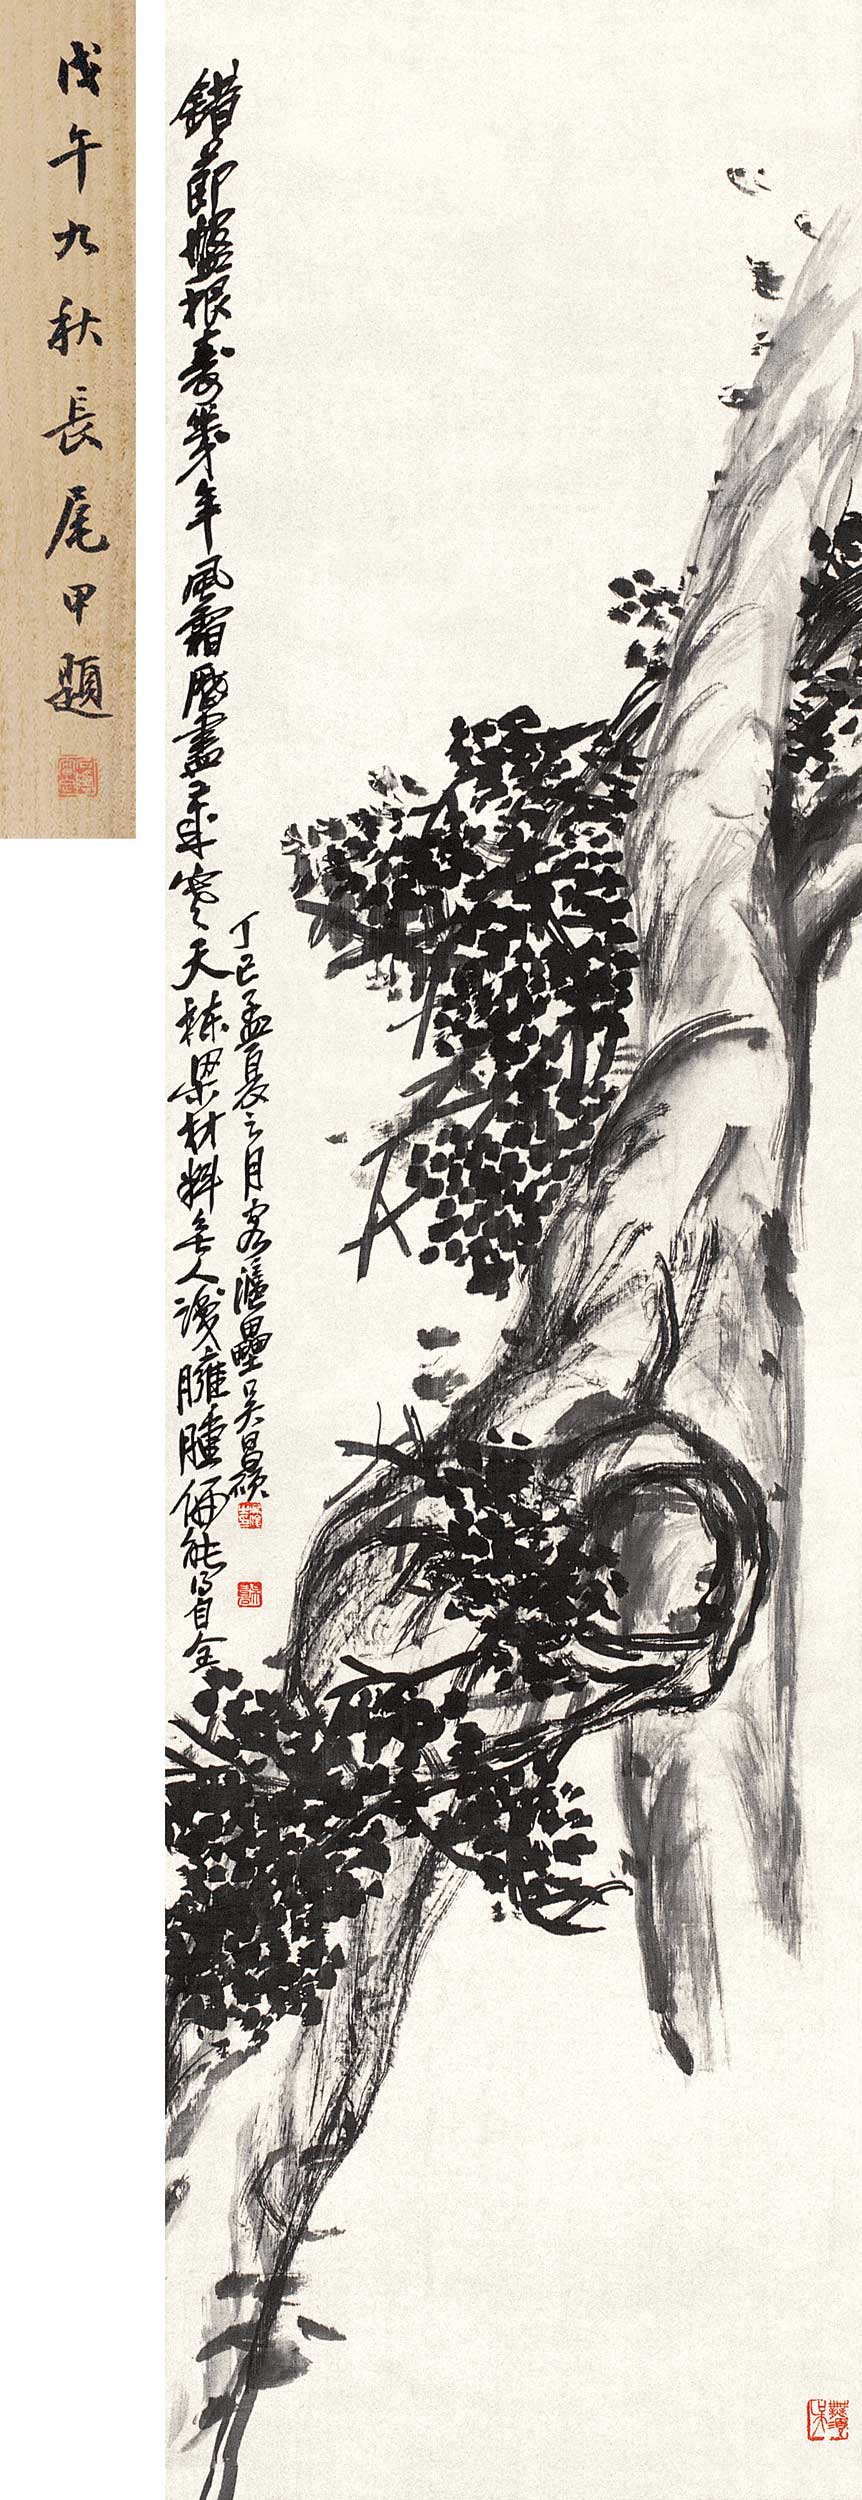 戊午九秋長尾甲題
錯節盤根壽幾年風霜歷盡寒天棟梁材料無人識臃腫偏能得自全
丁巳孟夏之月客滬壘吳昌碩